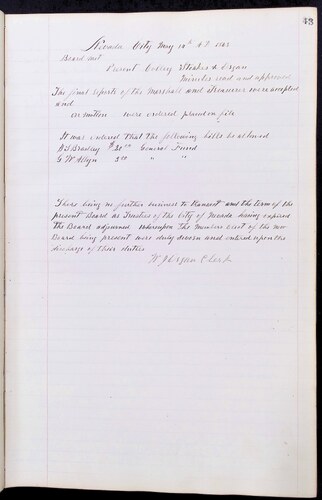 43
Nevada City May 14th A.D. 1883
Board met
Present Colley Stoakes & Organ
Minutes read and approved
The final reports of the Marshall and Treasurer were accepted
and
on motion were ordered placed on file
It was ordered that the following bills be allowed
$20.00 General Fund
G W 5.00 " "
There being no further business to transact and the term of the
present Board as Trustees of the City of Nevada having expired
the Board adjourned whereupon the members elect of the new
Board being present were duly sworn and entered upon the
discharge of their duties
W J Organ Clerk